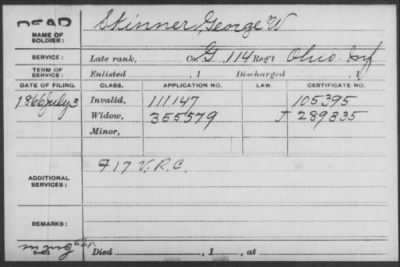 DEAD
NAME OF SOLDIER: Skinner, George W
SERVICE: Late rank, Co. G, 114 Reg't Ohio Inf
TERM OF SERVICE: Enlisted , 1 Discharged , 1
DATE OF FILING. CLASS. APPLICATION NO. LAW. CERTIFICATE NO.
1866 July 3 Invalid, 111147 105395
Widow, 355579 289835
Minor,
ADDITIONAL SERVICES: F 17 V.R.C.
REMARKS:
Died , 1 , at